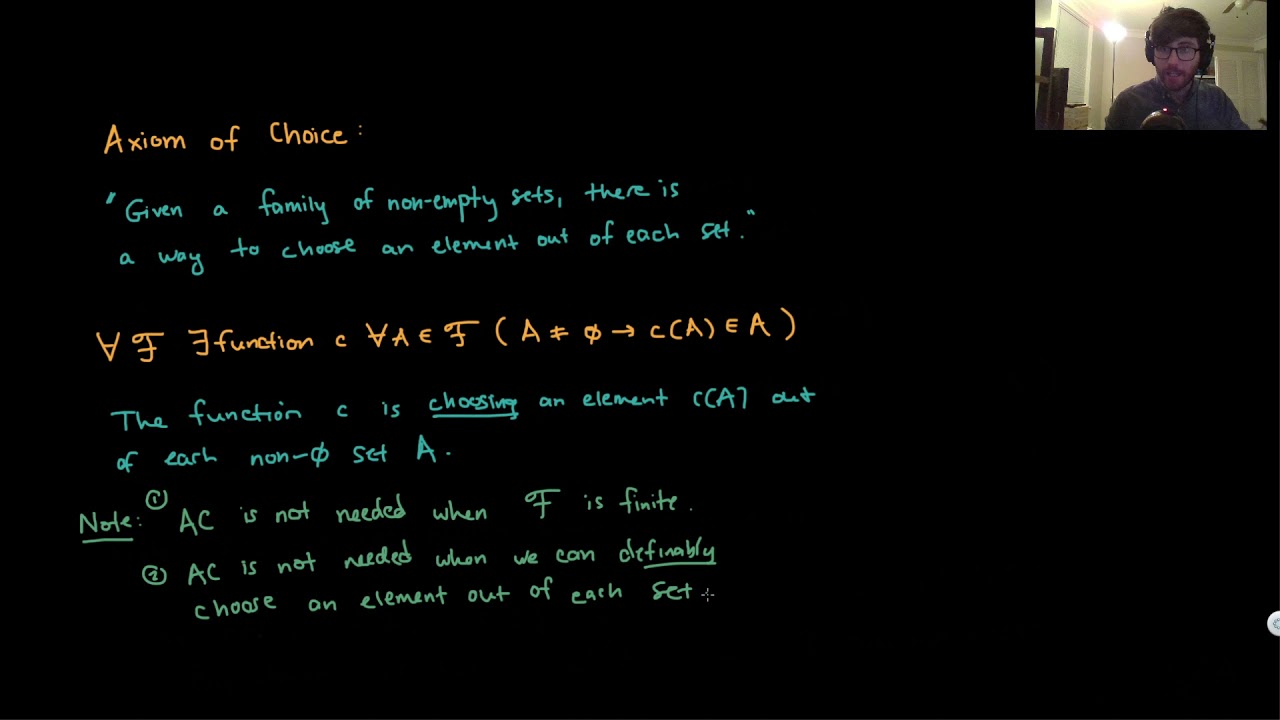 Axiom of Choice:
"Given a family of non-empty sets, there is
a way to choose an element out of each set."
∀ ℱ ∃ function c ∀A ∈ ℱ ( A ≠ ∅ → c(A) ∈ A )
The function c is choosing an element c(A) out
of each non-∅ set A.
Note: ① AC is not needed when ℱ is finite.
② AC is not needed when we can definably
choose an element out of each set.